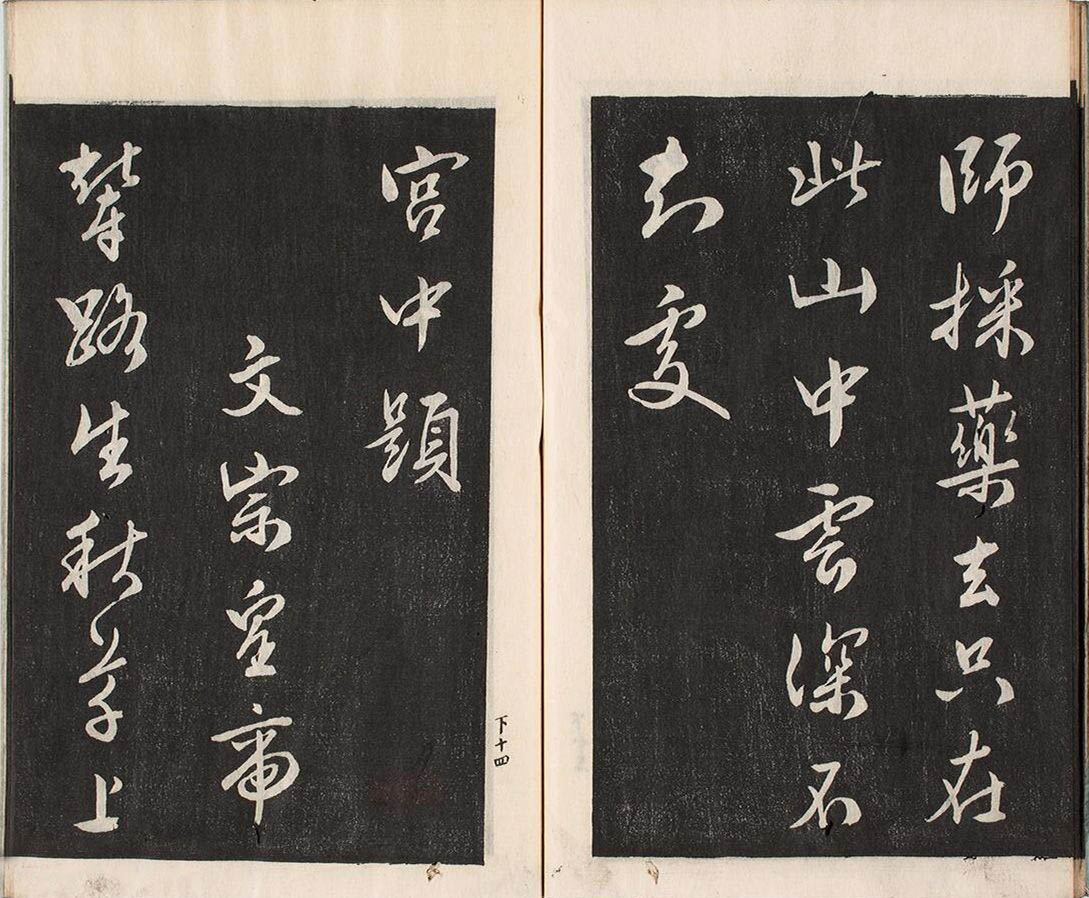 師採藥去只在
此山中雲深不
知處
宮中題
文宗皇帝
輦路生秋草上
下十四